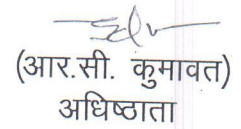 (आर.सी. कुमावत)
अधिष्ठाता